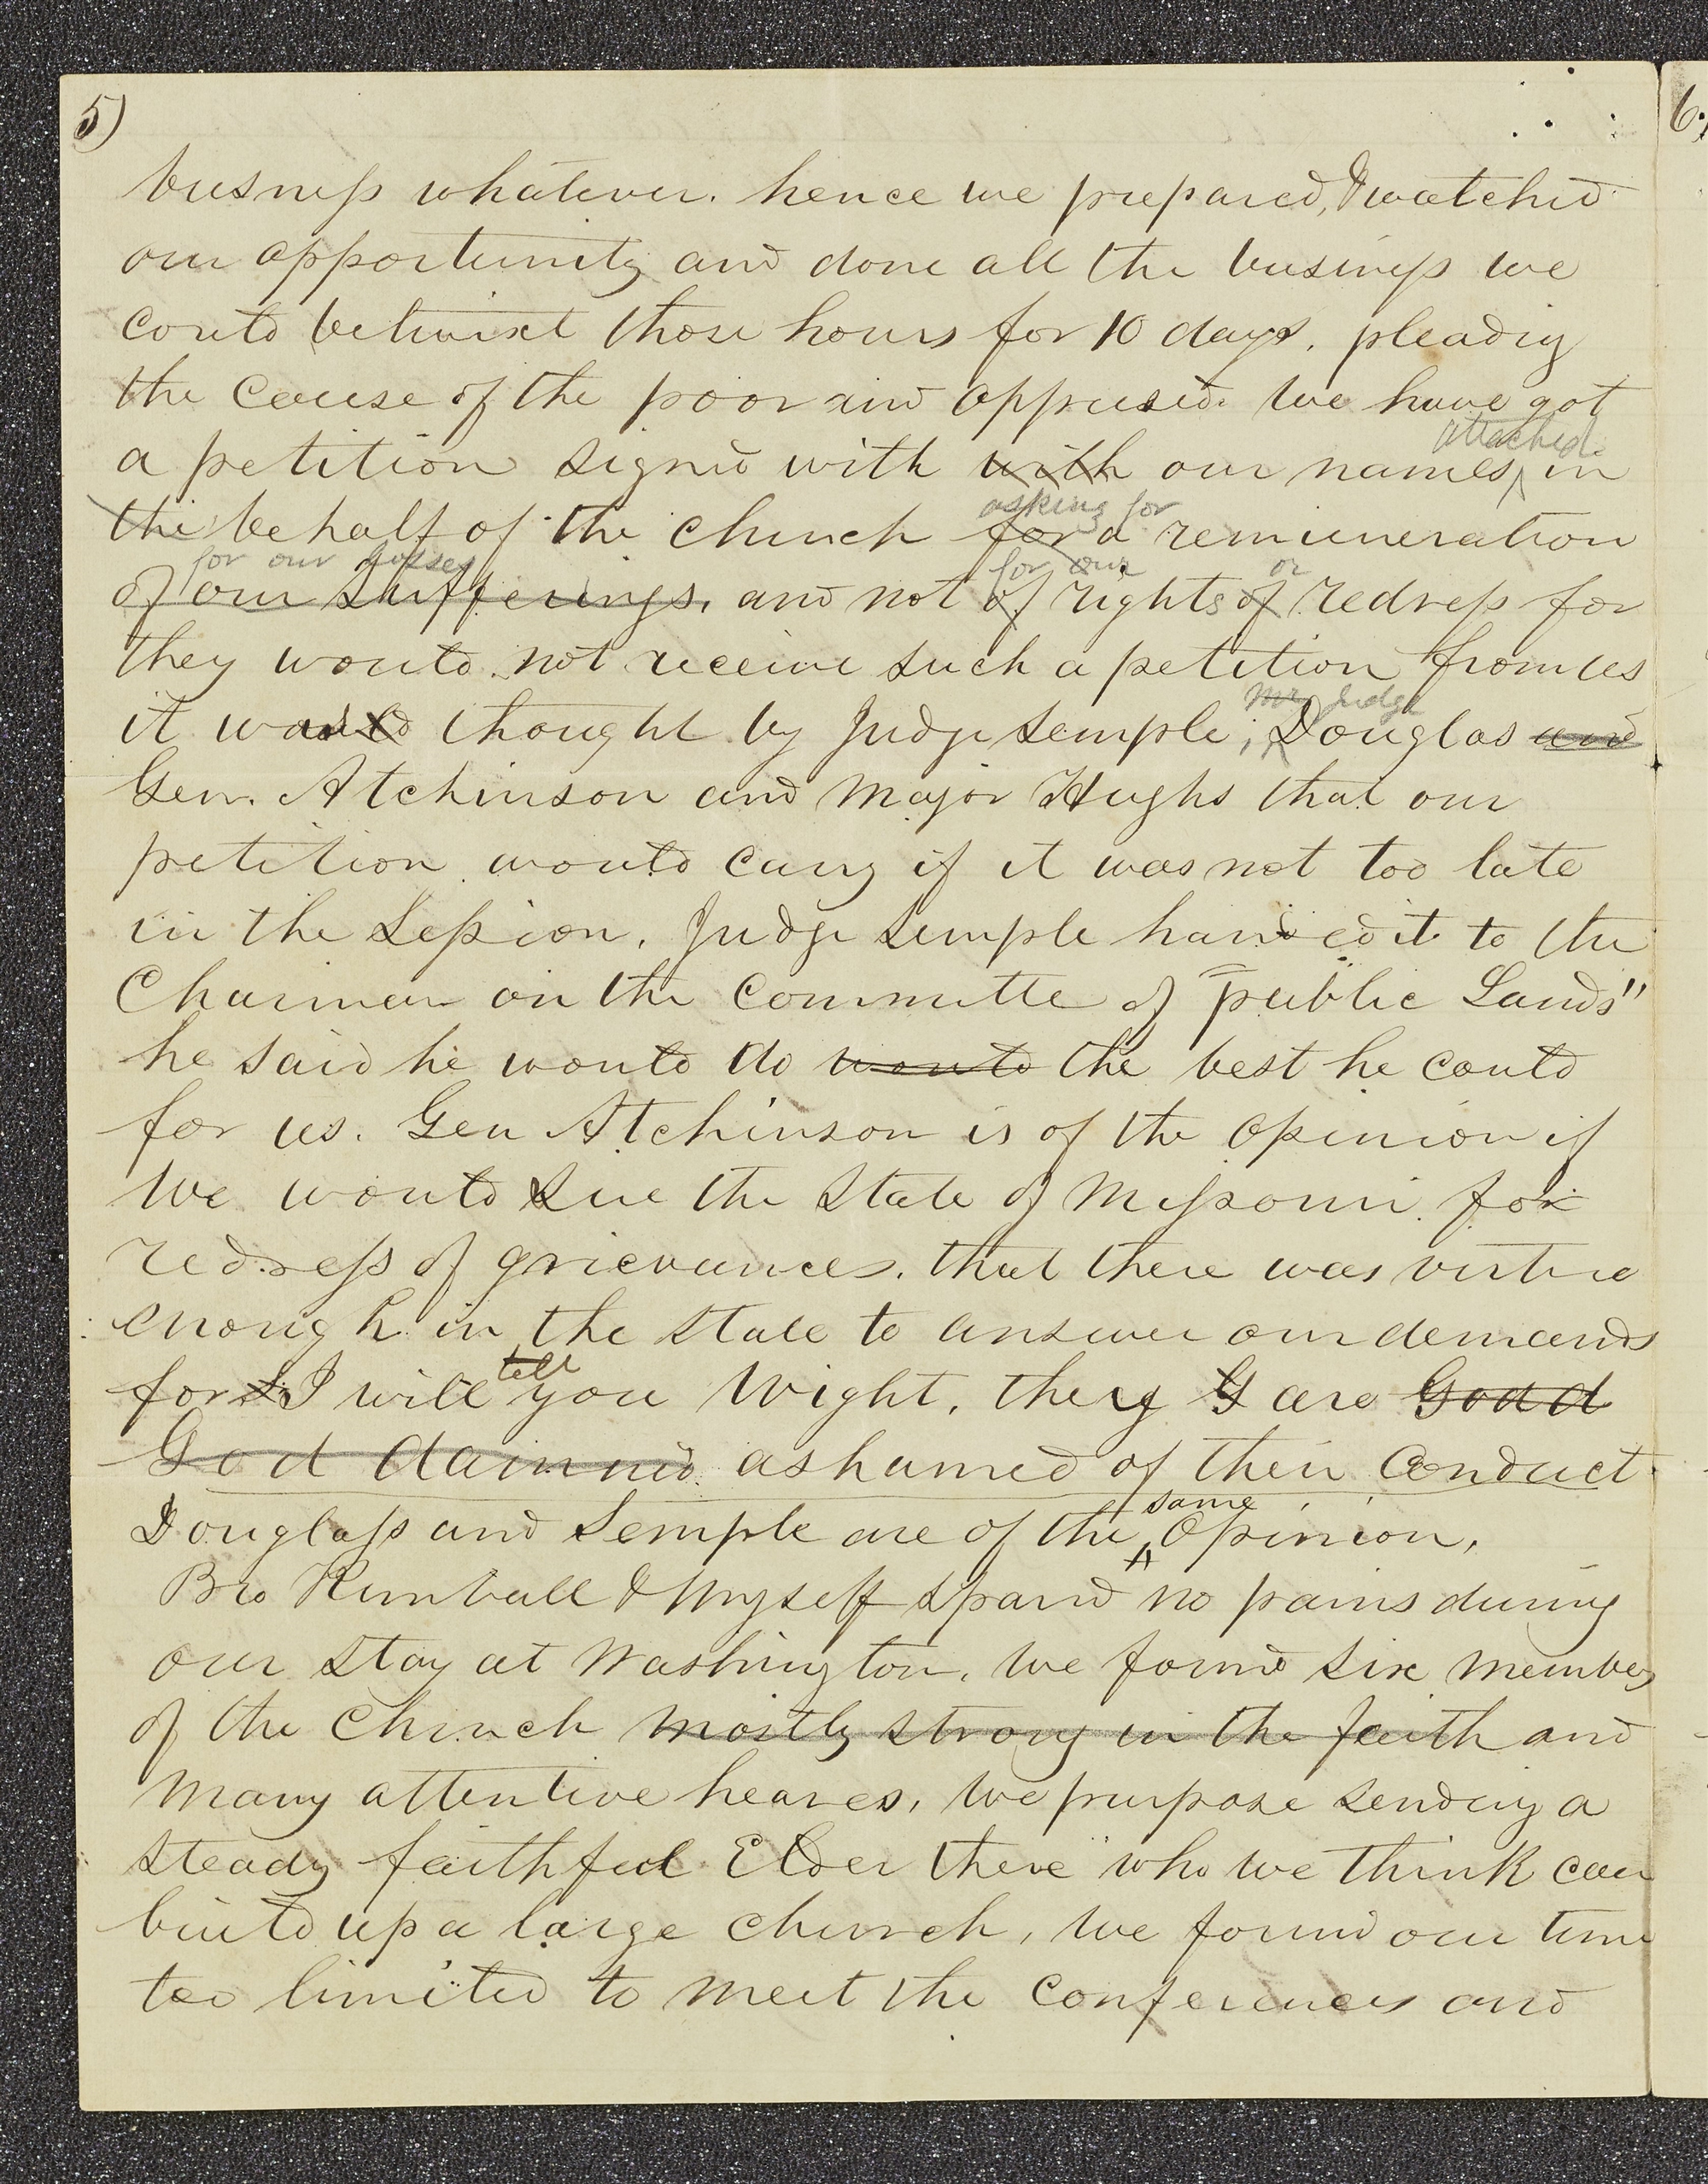 5)
6.
busness whatever. hence we prepared, & watched
our opportunity and done all the business we
could betwixt those hours for 10 days. pleadig
the cause of the poor and oppresed. We have got
attached
a petition signed with with our names ^ in
asking for
the behalf of the church for a remuneration
for our losses for our or
of our sufferings, and not of rights of redress for
they would not receive such a petition from us
Mr Judge
it was thought by Judge Semple, ^ Douglas and
Gen. Atchinson and Major Hughs that our
petition would carry if it was not too late
in the Session. Judge Semple handed it to the
Chairman on the committe of "public Lands"
he said he would do would the best he could
for us. Gen Atchinson is of the opinion if
we would Sue the State of Missouri for
redress of grievances. that there was virtue
enough in the state to answer our demands
tell
for I will you Wight, they are Godd
God damned ashamed of their Conduct.
same
Douglass and Semple are of the ^ opinion,
Bro Kimball & Myself spared no pains during
our stay at Washington. We found six members
of the Church mostly strong in the faith and
Many attentive heares, we purpose sending a
steady faithful Elder there who we think can
build up a large church, We found our time
too limited to meet the conferences and